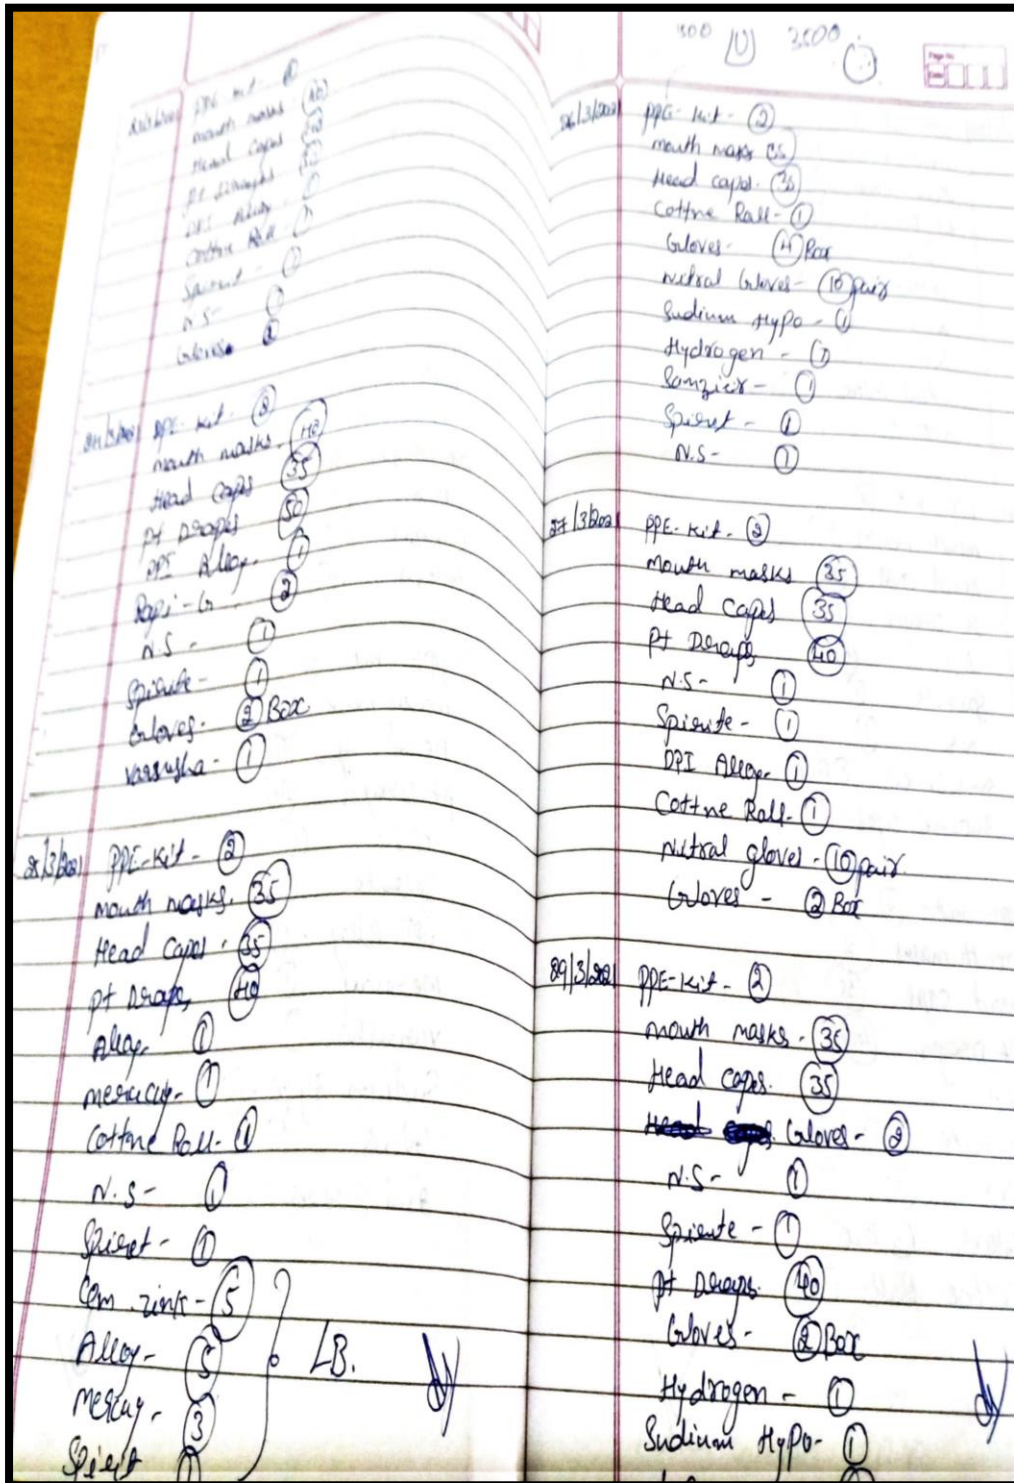 PPE Kit -
mouth masks 40
Head Capes
Pt Draps
DPI Alloy -
Cottne Roll -
Spirut - 1
N.S - 1
Gloves. 2
24/3/2021 PPE- Kit - 2
mouth masks. 40
Head Capes 35
Pt Draps 50
DPI Alloy. 1
Rapi-G 2
N.S - 1
Spirute - 1
Gloves. 2 Box
Varsusha - 1
25/3/2021 PPE-Kit - 2
mouth masks. 35
Head Capes . 35
Pt Draps 40
Alloy. 1
mercuy. 1
Cottne Roll - 1
N.S - 1
Spiret - 1
Cem . Zink - 5
Alloy - 5
mercuy - 3
LB.
Spiret 1
500 3500
Page No.
Date
26/3/2021 PPE- Kit - 2
mouth masks 35
Head capes. 35
Cottne Roll - 1
Gloves - 4 Box
Nutral Gloves - 10 pair
Sudium Hypo - 1
Hydrogen - 1
Sanzier - 1
Spiret - 1
N.S - 1
27/3/2021 PPE- Kit - 2
mouth masks 35
Head Capes 35
Pt Draps 40
N.S - 1
Spirute - 1
DPI Alloy. 1
Cottne Roll - 1
Nutral gloves - 10 pair
Gloves - 2 Box
29/3/2021 PPE-Kit - 2
mouth masks - 35
Head capes. 35
Gloves - 2
N.S - 1
Spirute - 1
Pt Draps. 40
Gloves - 2 Box
Hydrogen - 1
Sudium Hypo - 1